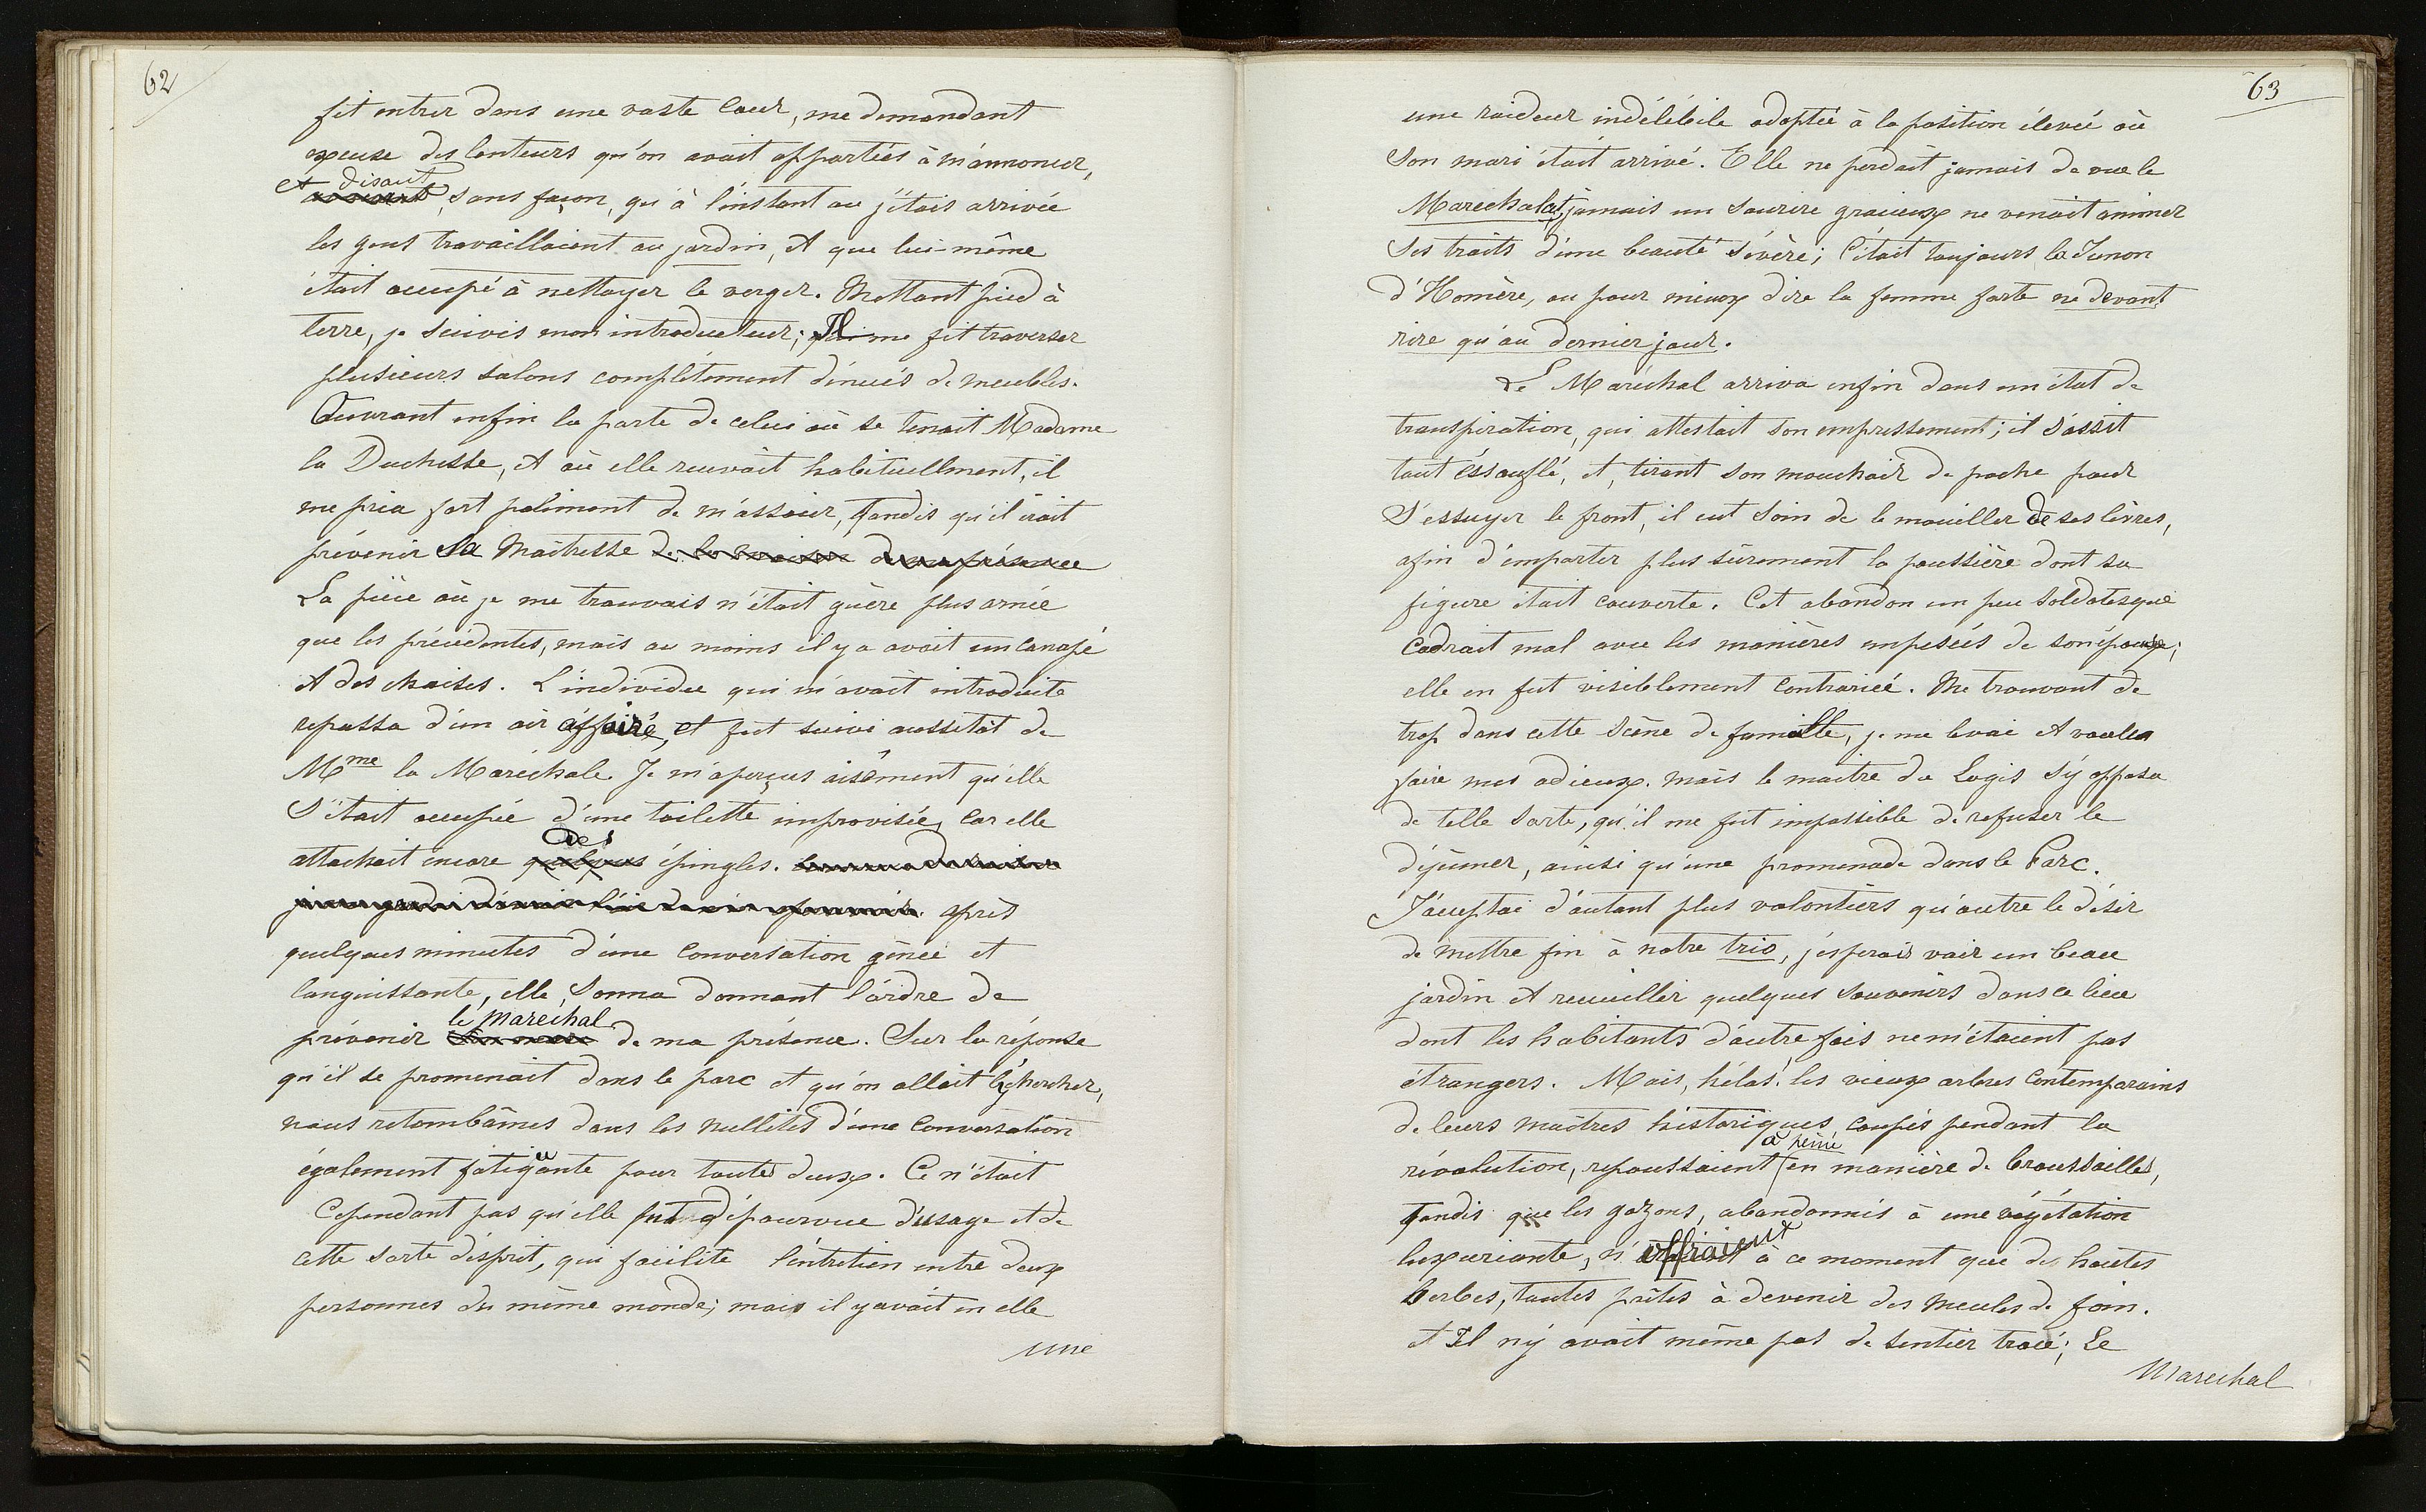 62
fit entrer dans une vaste Cour, me demandant
excuse des lenteurs qu'on avait apportées à m'annoncer,
et disant
sans façon, qu'à l'instant ou j'étais arrivée
les gens travaillaient au jardin, et que lui-même
était occupé à nettoyer le verger. Mettant pied à
terre, je suivis mon introducteur; Il me fit traverser
plusieurs salons complétement dénués de meubles.
Ouvrant enfin la porte de celui où se tenait Madame
la Duchesse, et où elle recevait habituellement, il
me pria fort poliment de m'asseoir, tandis qu'il irait
prévenir sa Maîtresse de la maison de ma présence
La pièce où je me trouvais n'était guère plus ornée
que les précédentes, mais au moins il y a avait un canapé
et des chaises. L'individu qui m'avait introduite
repassa d'un air affairé, et fut suivi aussitôt de
Mme la Maréchale. Je m'aperçus aisément qu'elle
s'était occupée d'une toilette improvisée, car elle
des
attachait encore quelques épingles.
après
quelques minutes d'une conversation gênée et
languissante, elle sonna donnant l'ordre de
le Marechal
prévenir son mari de ma présence. Sur la réponse
qu'il se promenait dans le parc et qu'on allait l'y chercher,
nous retombâmes dans les nullités d'une conversation
également fatiguante pour toutes deux. Ce n'était
Cependant pas qu'elle fut dépourvue d'usage et de
cette sorte d'esprit, qui facilite l'entretien entre deux
personnes du même monde; mais il y avait en elle
une
63
une raideur indélébile adaptée à la position élevée où
son mari était arrivé. Elle ne perdait jamais de vue le
Marechalat, jamais un sourire gracieux ne venait animer
ses traits d'une beauté sévère; C'était toujours la Junon
d'Homère, ou pour mieux dire la femme forte ne devant
rire qu'au dernier jour.
Le Maréchal arriva enfin dans un état de
transpiration, qui attestait son empressement; il s'assit
tout éssouflé, et, tirant son mouchoir de poche pour
s'essuyer le front, il eut soin de le mouiller de ses lèvres,
afin d'emporter plus sûrement la poussière dont sa
figure était couverte. Cet abandon un peu soldatesque
cadrait mal avec les manières empesées de son épouse;
elle en fut visiblement contrariée. Me trouvant de
trop dans cette scène de famille, je me levai et voulus
faire mes adieux. mais le maitre du Logis s'y opposa
de telle sorte, qu'il me fut impossible de refuser le
déjeuner, ainsi qu'une promenade dans le Parc.
J'acceptai d'autant plus volontiers qu'outre le désir
de mettre fin à notre trio, j'espérais voir un beau
jardin et recueillir quelques souvenirs dans ce lieu
dont les habitants d'autre fois ne m'étaient pas
étrangers. Mais, hélas! les vieux arbres contemporains
de leurs maîtres historiques coupés pendant la
à peine
révolution, repoussaient en manière de broussailles,
tandis que les gazons, abandonnés à une végétation
luxuriante, n'offraient à ce moment que des hautes
herbes, toutes prêtes à devenir des meules de foin.
et Il n'y avait même pas de sentier tracé; Le
Marechal